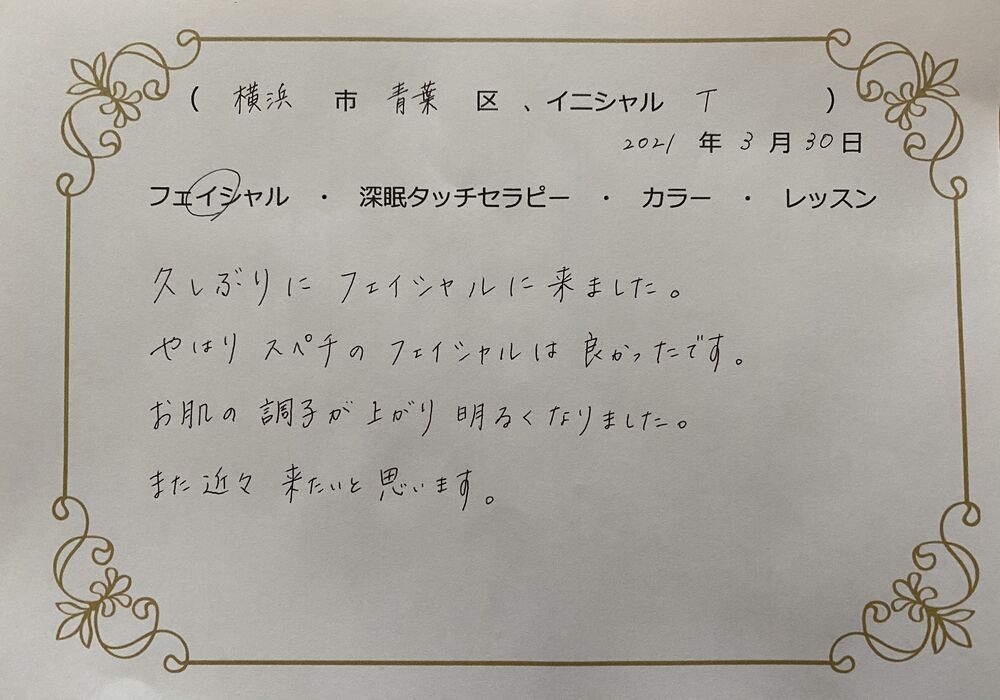 ( 横浜 市 青葉 区 、イニシャル T )
2021 年 3 月 30 日
フェイシャル ・ 深眠タッチセラピー ・ カラー ・ レッスン
久しぶりに フェイシャルに 来ました。
やはり スペチの フェイシャルは 良かったです。
お肌の 調子が 上がり 明るくなりました。
また 近々 来たいと 思います。